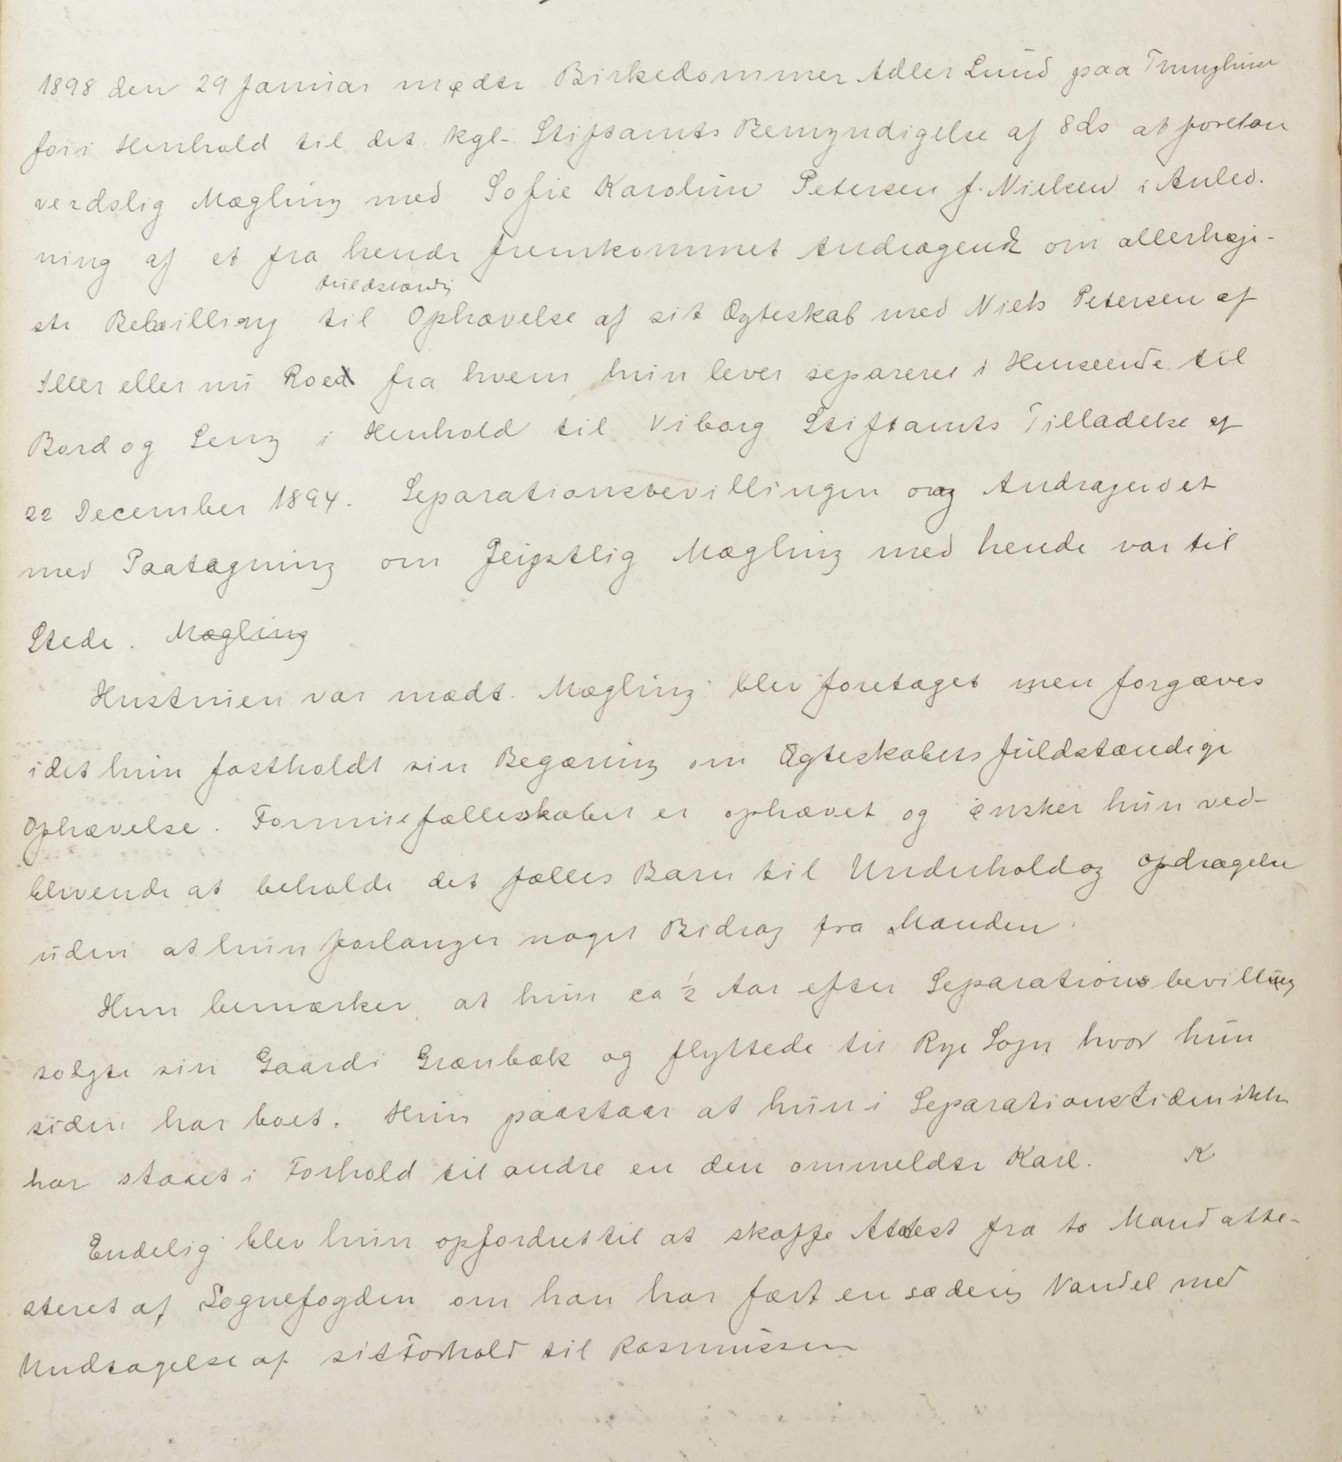 1898 den 29 Januar mødte Birkedommer Adler Lund paa Tinghuset
for i Henhold til det kgl. Stiftamts Bemyndigelse af 8 ds at foretage
verdslig Mægling med Sofie Karoline Petersen f. Nielsen i Anled-
ning af et fra hende fremkommet Andragende om allerhøje-
fuldstændig
ste Bevilling til Ophævelse af sit Ægteskab med Niels Petersen af
eller nu Roed fra hvem hun lever separeret i Henseende til
Bord og Seng i Henhold til Viborg Stiftamts Tilladelse af
22 December 1894. Separationsbevillingen og Andragendet
med Paategning om Gejstlig Mægling med hende var til
Stede. Mægling
Hustruen var mødt. Mægling blev foretaget men forgæves
idet hun fastholdt sin Begæring om Ægteskabets fuldstændige
Ophævelse. Formuefællesskabet er ophævet og ønsker hun ved-
blivende at beholde det fælles Barn til Underhold og Opdragelse
uden at hun forlanger noget Bidrag fra Manden.
Hun bemærker at hun ca ½ Aar efter Separationsbevilling
solgte sin Gaard i Grønbæk og flyttede til Rye Sogn hvor hun
siden har boet. Hun paastaar at hun i Separationstiden ikke
har staaet i Forhold til andre en den ommeldte Karl. K
Endelig blev hun opfordret til at skaffe Attest fra to Mænd atte-
steret af Sognefogden om han har ført en sædelig Vandel med
Undtagelse af sit Forhold til Rasmussen